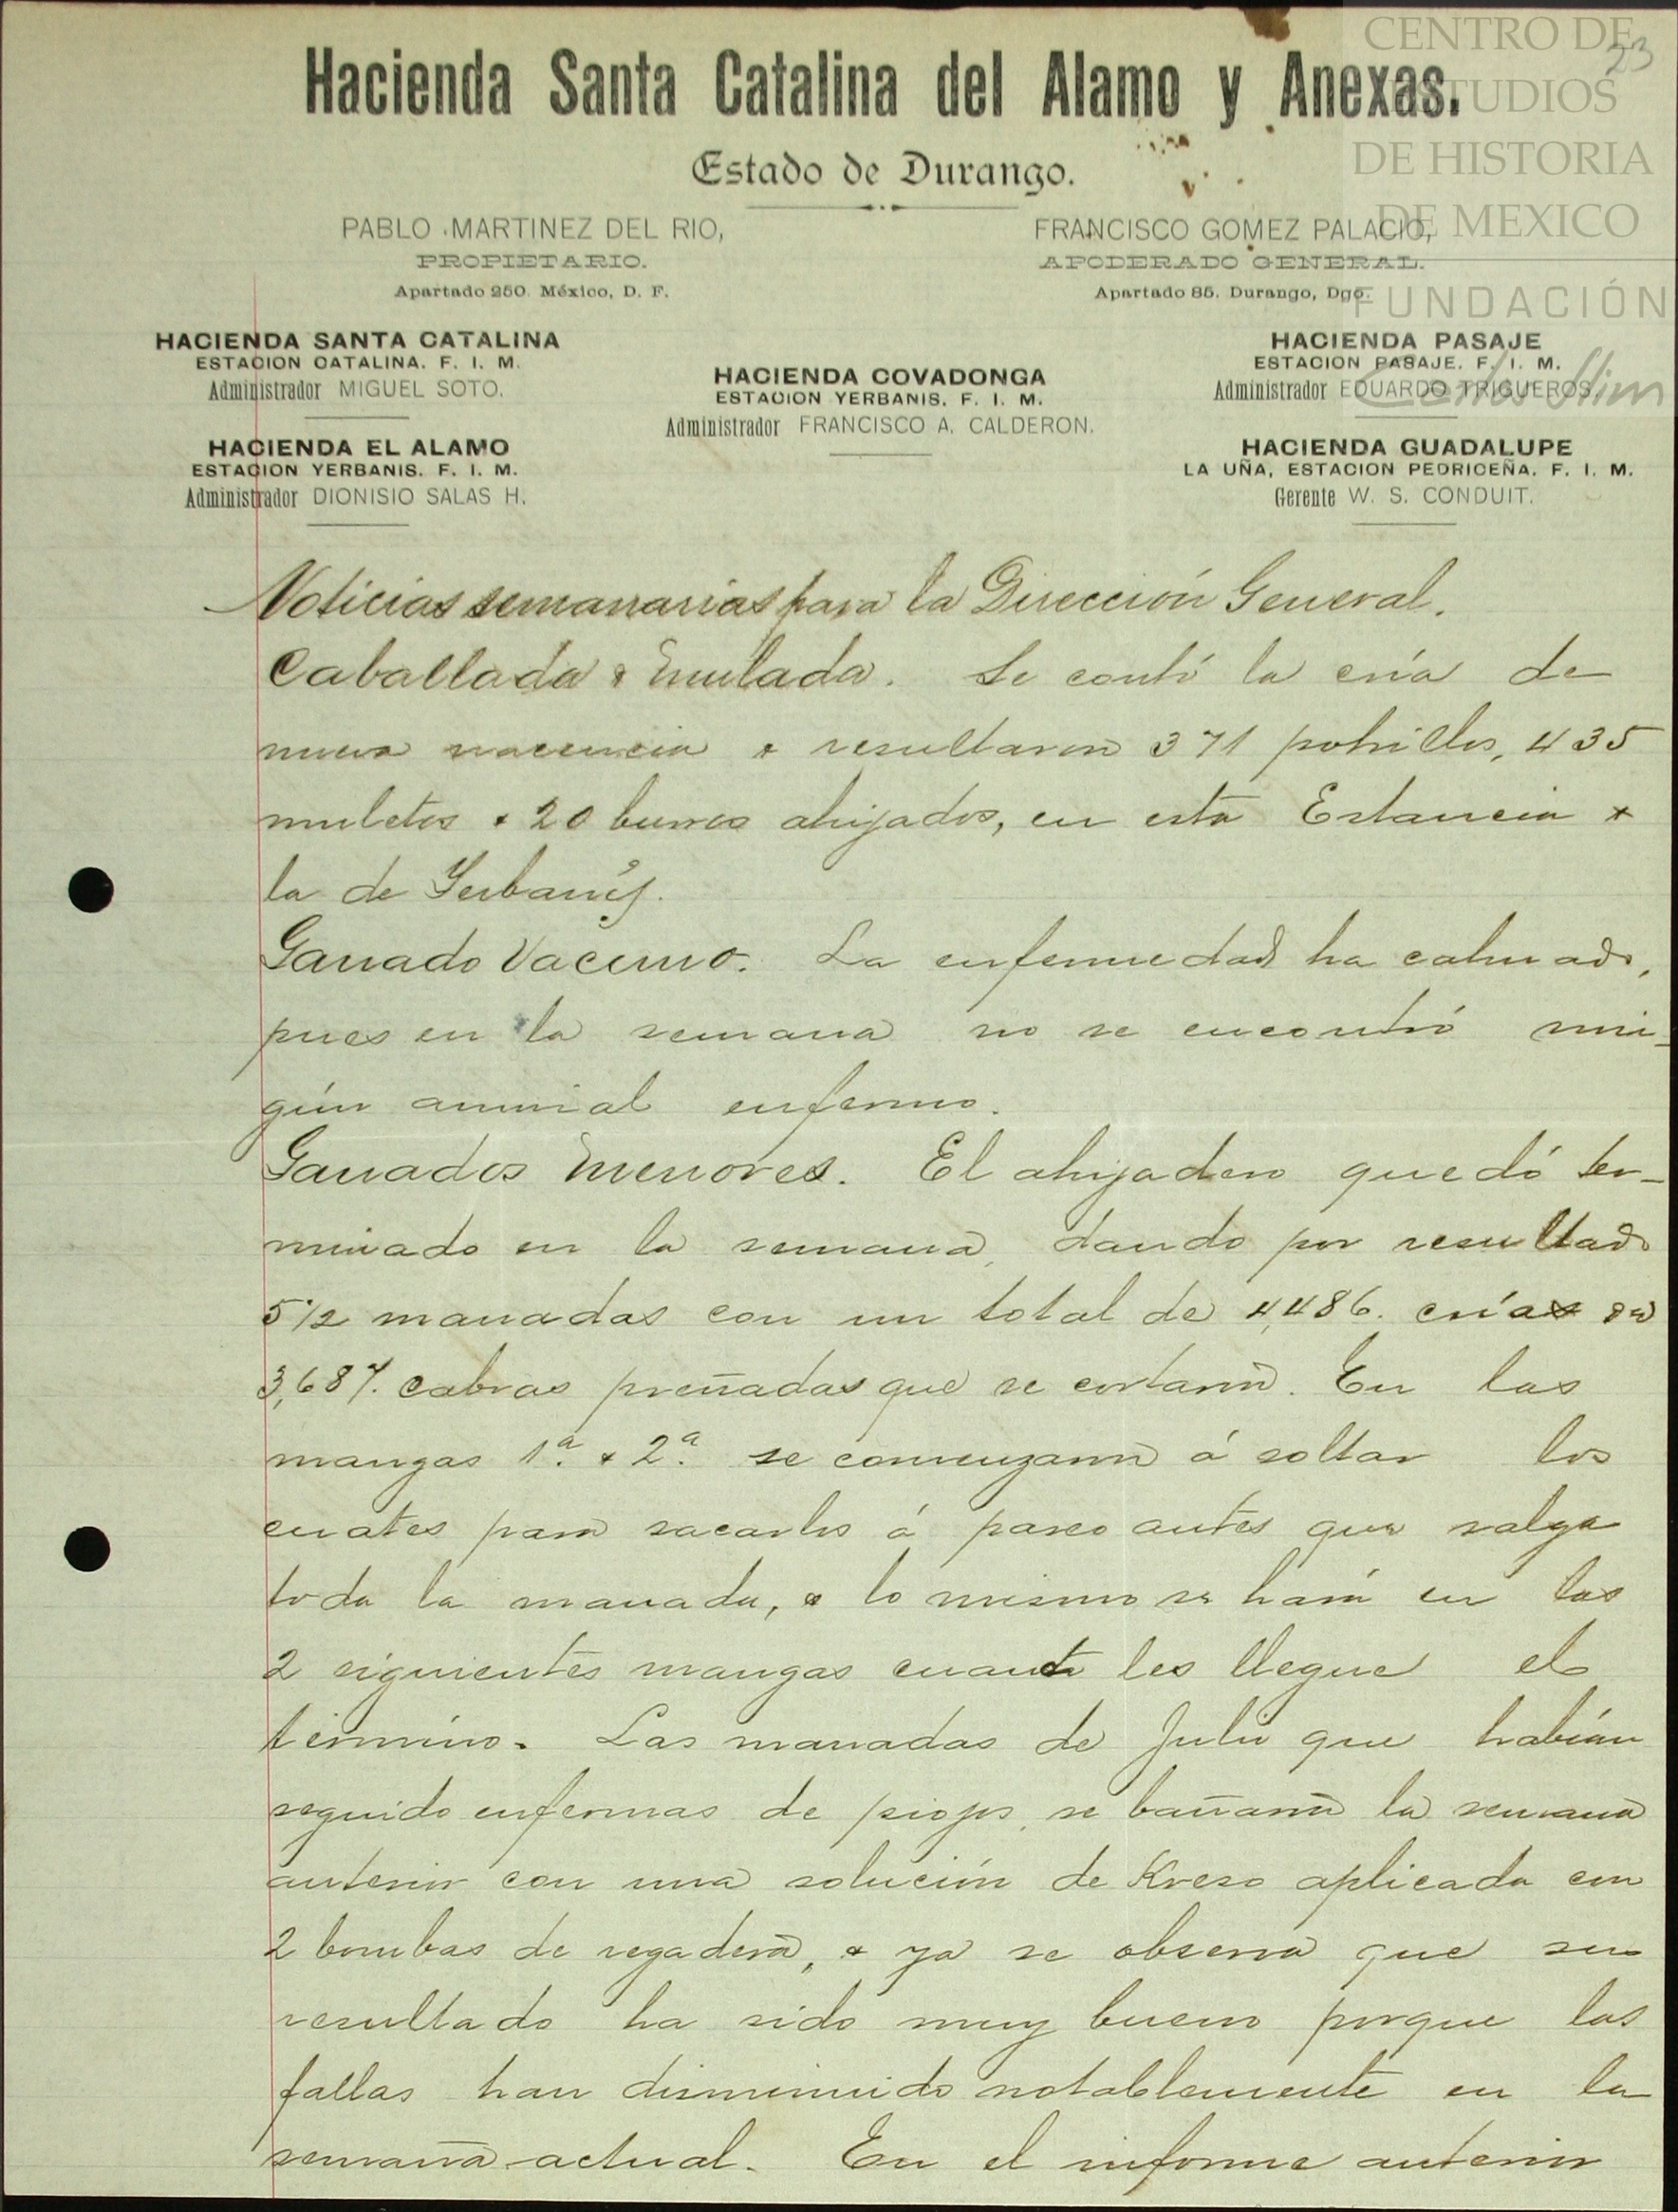 CENTRO DE
ESTUDIOS
DE HISTORIA
DE MEXICO
FUNDACIÓN
Carlos Slim
23
Hacienda Santa Catalina del Alamo y Anexas.
Estado de Durango.
PABLO MARTINEZ DEL RIO,
PROPIETARIO.
Apartado 250. México, D. F.
FRANCISCO GOMEZ PALACIO,
APODERADO GENERAL.
Apartado 85. Durango, Dgo.
HACIENDA SANTA CATALINA
ESTACION CATALINA. F. I. M.
Administrador MIGUEL SOTO.
HACIENDA EL ALAMO
ESTACION YERBANIS. F. I. M.
Administrador DIONISIO SALAS H.
HACIENDA COVADONGA
ESTACION YERBANIS. F. I. M.
Administrador FRANCISCO A. CALDERON.
HACIENDA PASAJE
ESTACION PASAJE. F. I. M.
Administrador EDUARDO TRIGUEROS.
HACIENDA GUADALUPE
LA UÑA, ESTACION PEDRICEÑA. F. I. M.
Gerente W. S. CONDUIT.
Noticias semanarias para la Dirección General.
Caballada & mulada. Se contó la cría de
nueva nacencia & resultaron 371 potrillos, 435
muletos & 20 burros ahijados, en esta Estancia &
la de Yerbanís.
Ganado Vacuno. La enfermedad ha calmado,
pues en la semana no se encontró nin-
gún animal enfermo.
Ganados menores. El ahijadero quedó ter-
minado en la semana, dando por resultado
5 1/2 manadas con un total de 4,486. crías de
3,687. cabras preñadas que se cortaron. En las
mangas 1ª. & 2ª. se comenzaron á soltar los
cuates para sacarlos á paseo antes que salga
toda la manada, & lo mismo se hará en las
2 siguientes mangas cuando les llegue el
término. Las manadas de Julio que habían
seguido enfermas de piojos, se bañaron la semana
anterior con una solución de Kreso aplicada con
2 bombas de regadera, & ya se observa que su
resultado ha sido muy bueno porque las
fallas han disminuido notablemente en la
semana actual. En el informe anterior